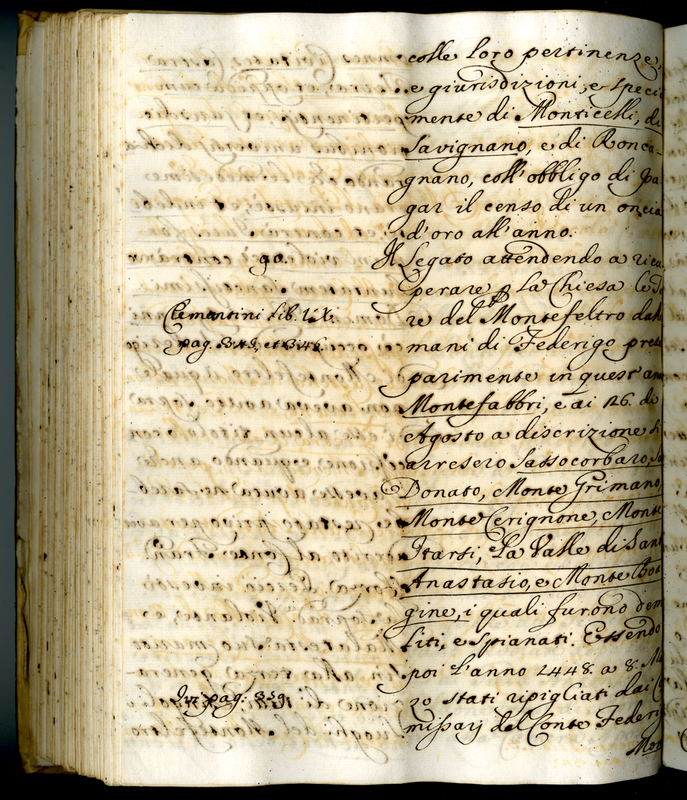 colle loro pertinenze,
e giurisdizioni, e speci
mente di Monticelli, di
Savignano, e di Ronca-
gnano, coll'obbligo di pa
gar il censo di un oncia
d'oro all'anno.
Il Legato attendendo a ricu
perare p la Chiesa le
re del Montefeltro dal
mani di Federigo pre
parimente in quest' an
Montefabbri, e ai 26. di
Agosto a discrizione si
arresero Sassocorbaro, S
Donato, Monte Grimano
Monte Cerignone, Monte
Itarsi, La Valle di Sant
Anastasio, e Monte Bot
gine, i quali furono dem
liti, e spianati. Essendo
poi l'anno 1448. a 8. M
zo stati ripigliati dai C
missarj del Conte Federi
Mon
Clementini lib. IX.
pag. 343, et 346.
Ivi pag. 359.